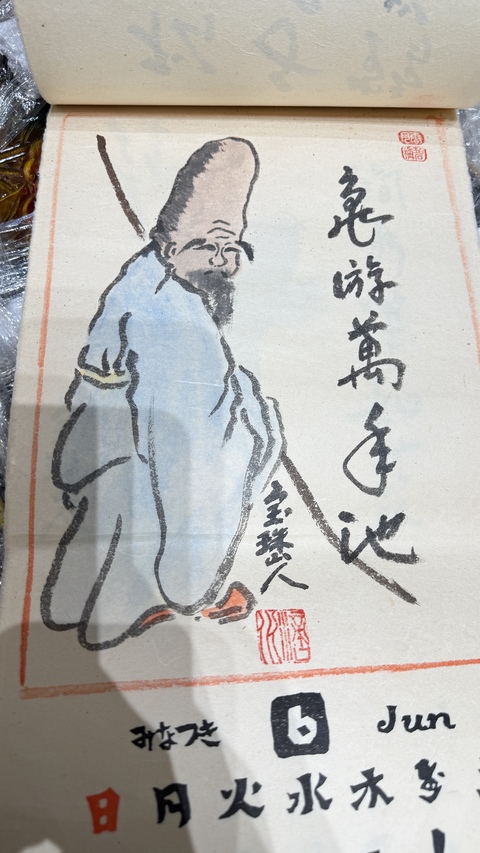 亀游萬年池
宝珠山人
みなつき 6 Jun
日 月 火 水 木 金